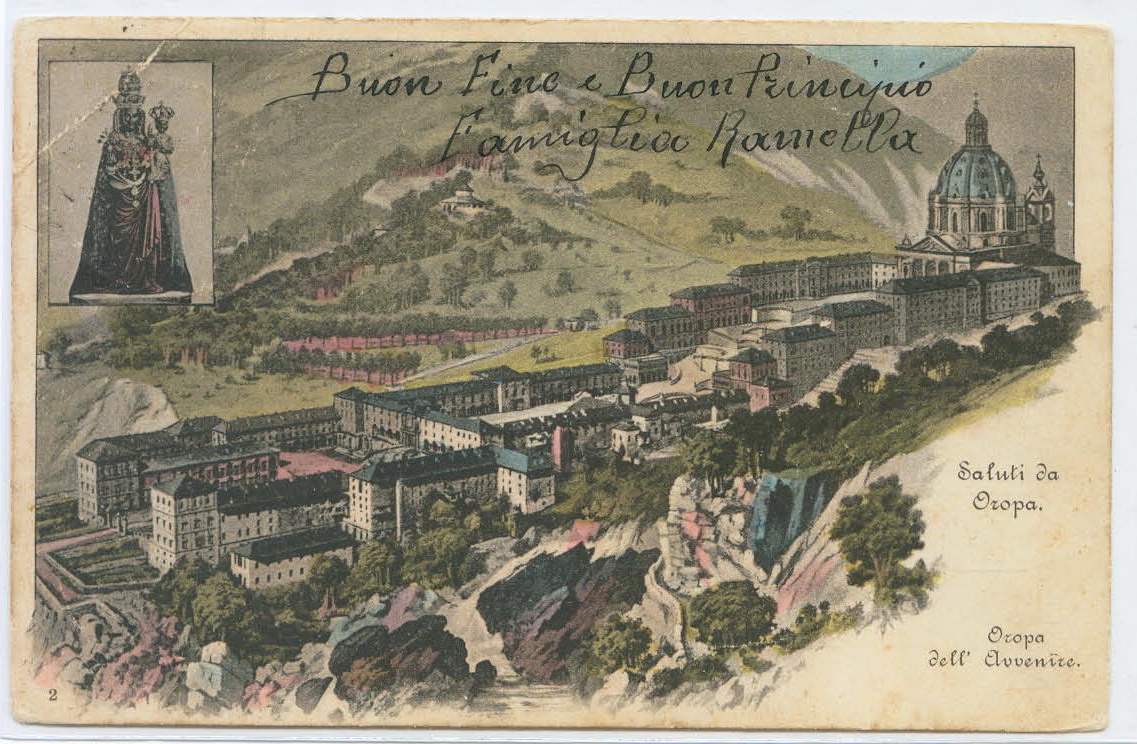 Buon Fine e Buon Principio
Famiglia Ramella
Saluti da
Oropa.
Oropa
dell' Avvenire.
2